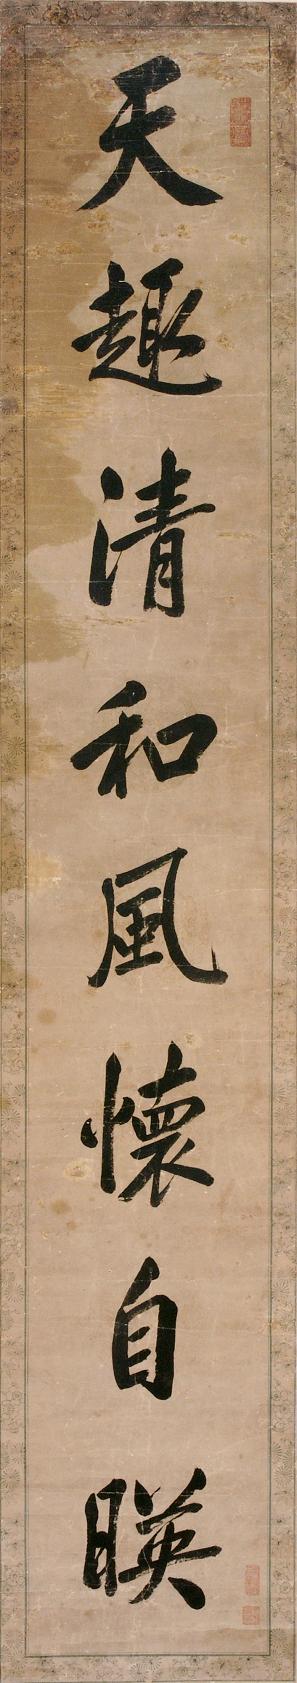 天趣清和風懷自暎